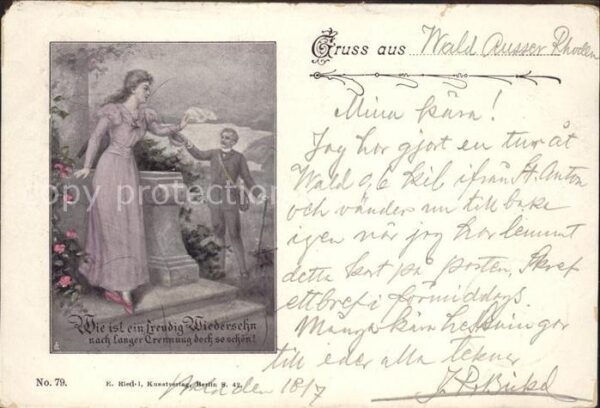 Gruss aus Wald Ausser Rhoden
Mina kära!
Jag har gjort en tur åt
Wald ifrån St. Anton
och vänder nu till baka
igen när jag har lemnt
detta kort på posten, Skref
ett bref i förmiddags.
Många kära helsningar
till eder alla
Wie ist ein freudig Wiedersehn
nach langer Trennung doch so schön!
No. 79.
E. Riedl, Kunstverlag, Berlin S. 42.
copy protection